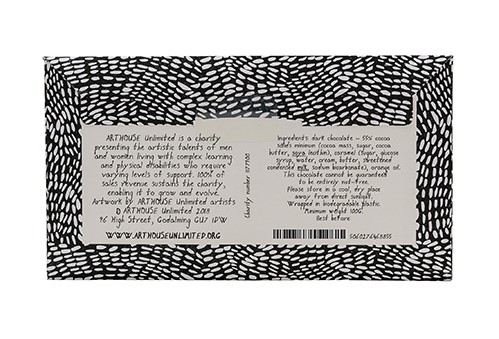 ARTHOUSE Unlimited is a charity
presenting the artistic talents of men
and women living with complex learning
and physical disabilities who require
varying levels of support. 100% of
sales revenue sustains the charity,
enabling it to grow and evolve.
Artwork by ARTHOUSE Unlimited artists
© ARTHOUSE Unlimited 2018
96 High Street, Godalming GU7 1DW
WWW.ARTHOUSEUNLIMITED.ORG
Charity number: 1177100
Ingredients dark chocolate - 55% cocoa
solids minimum (cocoa mass, sugar, cocoa
butter, soya lecithin), caramel (sugar, glucose
syrup, water, cream, butter, sweetened
condensed milk, sodium bicarbonate), orange oil.
This chocolate cannot be guaranteed
to be entirely nut-free.
Please store in a cool, dry place
away from direct sunlight.
Wrapped in biodegradable plastic.
Minimum weight 100G.
Best before